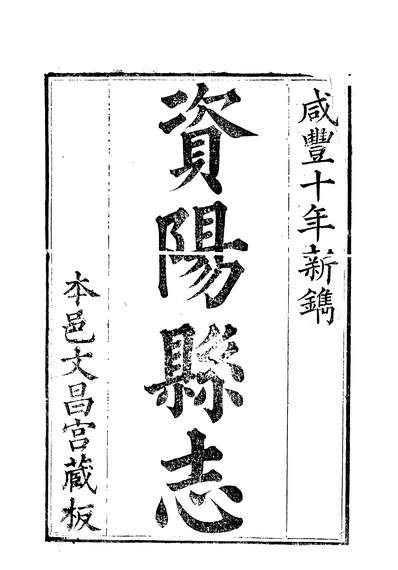 咸豐十年新鐫
資陽縣志
本邑文昌宮藏板